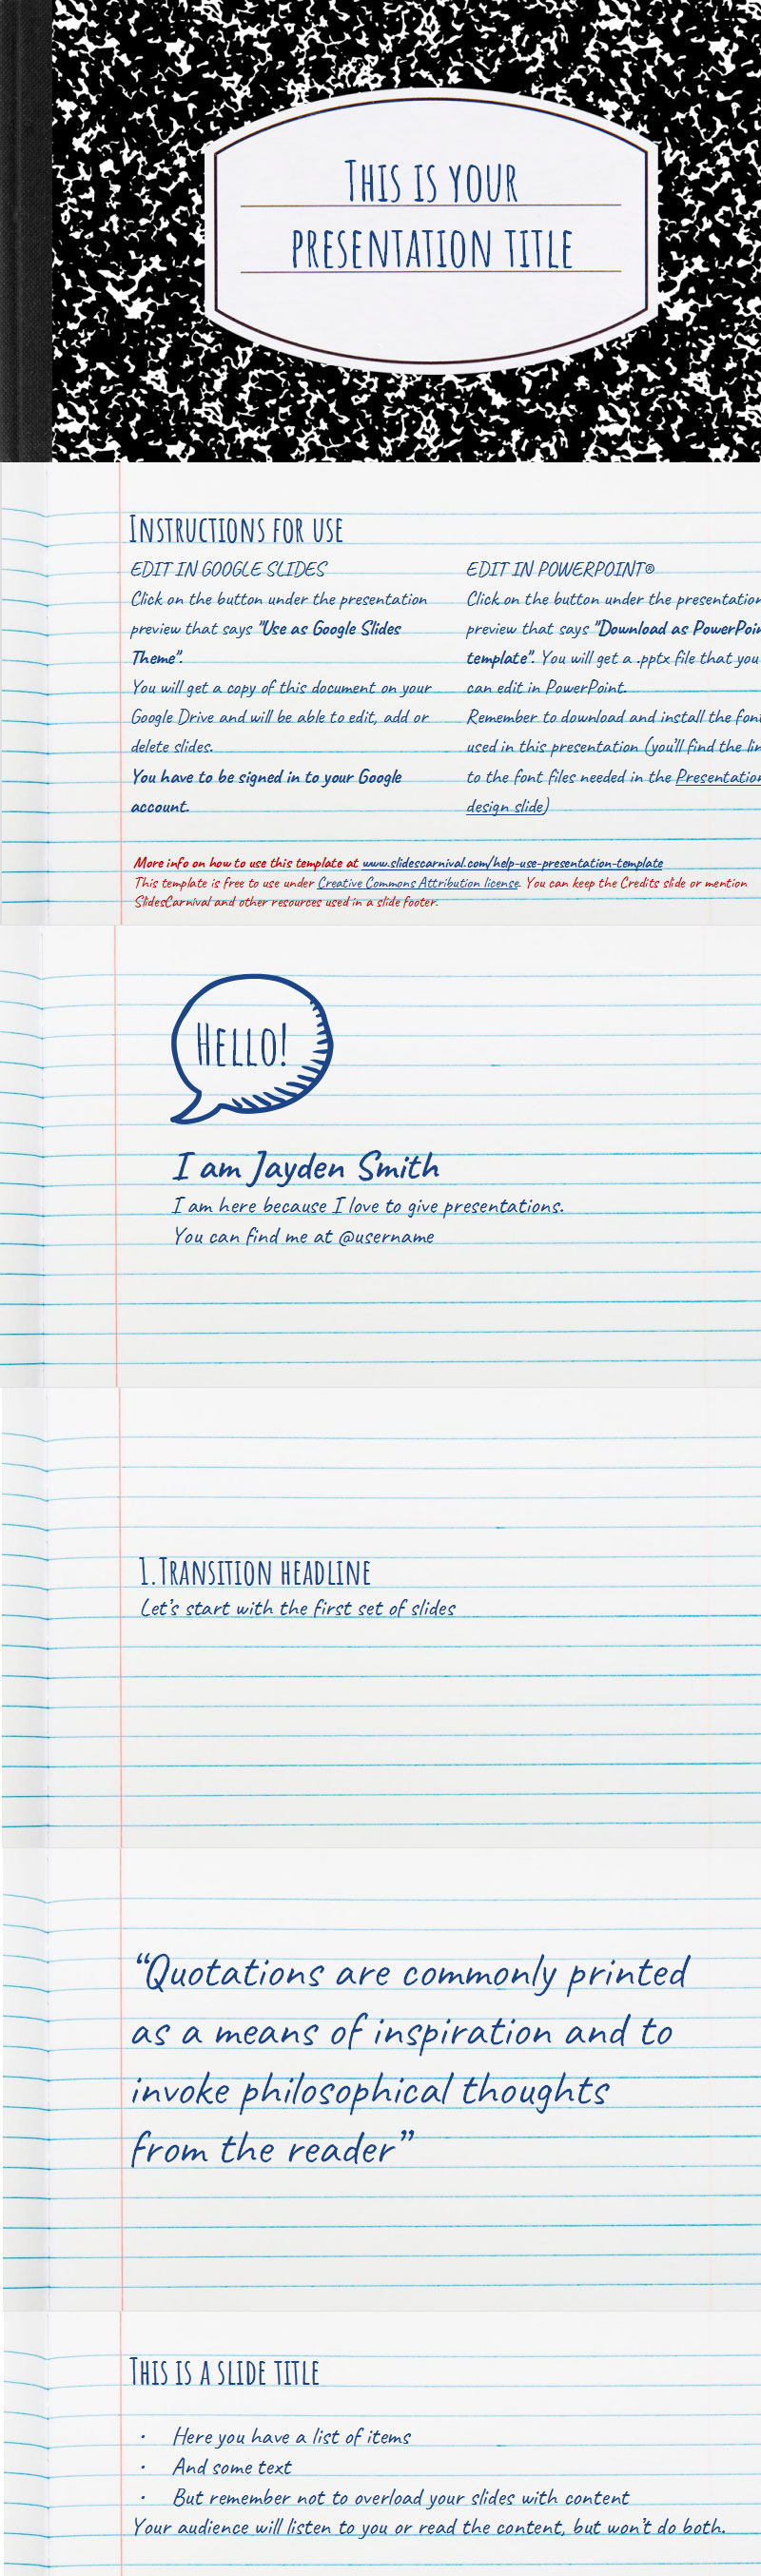 This is your
presentation title
Instructions for use
EDIT IN GOOGLE SLIDES
Click on the button under the presentation
preview that says "Use as Google Slides
Theme".
You will get a copy of this document on your
Google Drive and will be able to edit, add or
delete slides.
You have to be signed in to your Google
account.
EDIT IN POWERPOINT®
Click on the button under the presentation
preview that says "Download as PowerPoin
template". You will get a .pptx file that you
can edit in PowerPoint.
Remember to download and install the font
used in this presentation (you'll find the lin
to the font files needed in the Presentation
design slide)
More info on how to use this template at www.slidescarnival.com/help-use-presentation-template
This template is free to use under Creative Commons Attribution license. You can keep the Credits slide or mention
SlidesCarnival and other resources used in a slide footer.
Hello!
I am Jayden Smith
I am here because I love to give presentations.
You can find me at @username
1.Transition headline
Let's start with the first set of slides
“Quotations are commonly printed
as a means of inspiration and to
invoke philosophical thoughts
from the reader”
This is a slide title
· Here you have a list of items
· And some text
· But remember not to overload your slides with content
Your audience will listen to you or read the content, but won't do both.